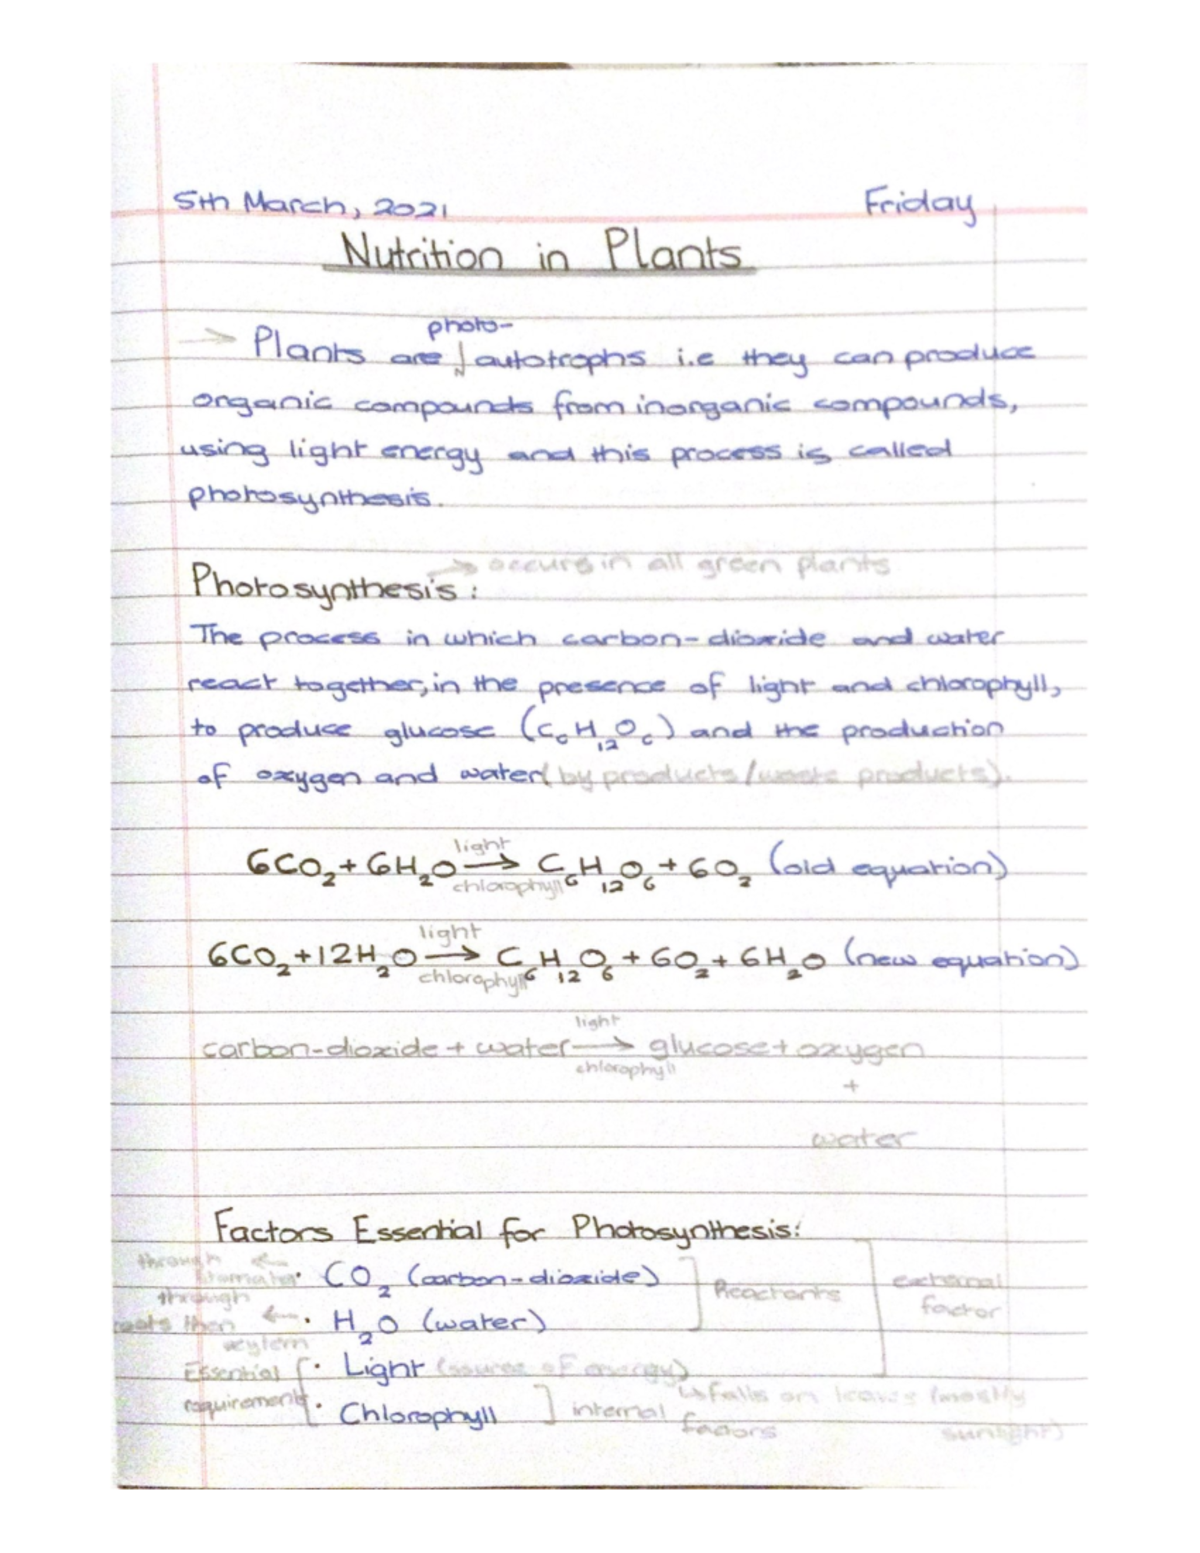 5th March, 2021 Friday
Nutrition in Plants
photo-
→ Plants are autotrophs i.e they can produce
organic compounds from inorganic compounds,
using light energy and this process is called
photosynthesis.
→ occurs in all green plants
Photosynthesis:
The process in which carbon-dioxide and water
react together, in the presence of light and chlorophyll,
to produce glucose (C₆H₁₂O₆) and the production
of oxygen and water (by products/waste products).
light
6CO₂ + 6H₂O → C₆H₁₂O₆ + 6O₂ (old equation)
chlorophyll
light
6CO₂ + 12H₂O → C₆H₁₂O₆ + 6O₂ + 6H₂O (new equation)
chlorophyll
light
carbon-dioxide + water → glucose + oxygen
chlorophyll
+
water
Factors Essential for Photosynthesis:
through ←
stomata • CO₂ (carbon-dioxide) Reactants external
through factor
roots then ← • H₂O (water)
xylem
Essential • Light (source of energy)
↳ falls on leaves (mostly
requirements • Chlorophyll ] internal factors sunlight)